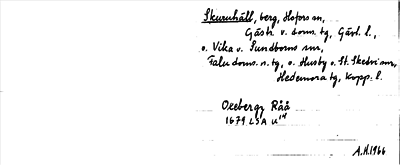 Skuruhäll, berg, Hofors sn,
Gästr. v. doms. tg, Gävl. l.,
o. Vika o. Sundborns snr,
Falu doms. n. tg, o. Husby o. St. Skedvi snr,
Hedemora tg, Kopp. l.
Oxebergz Råå
1671 LSA U
A.H. 1966